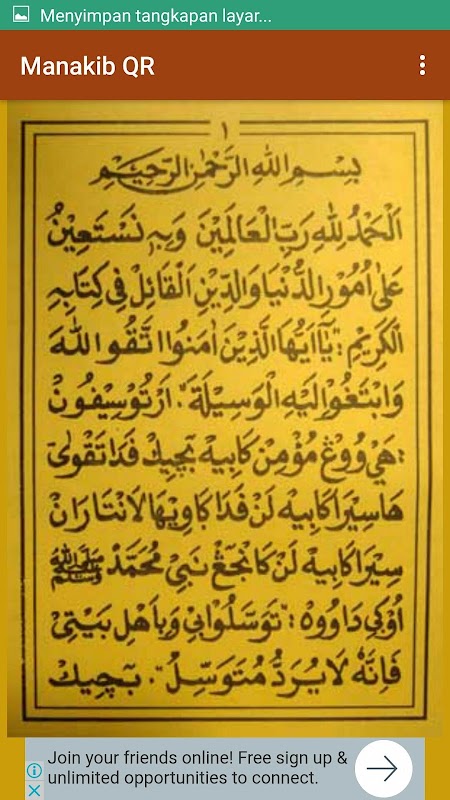 Menyimpan tangkapan layar...
Manakib QR
١
بِسْمِ اللهِ الرَّحْمٰنِ الرَّحِيْمِ
اَلْحَمْدُ لِلّٰهِ رَبِّ الْعَالَمِيْنَ وَبِهِ نَسْتَعِيْنُ
عَلٰى اُمُوْرِ الدُّنْيَا وَالدِّيْنِ اَلْقَائِلِ فِيْ كِتَابِهِ
الْكَرِيْمِ : يٰااَيُّهَا الَّذِيْنَ اٰمَنُوا اتَّقُوا اللهَ
وَابْتَغُوْا اِلَيْهِ الْوَسِيْلَةَ". ارتوسيفون
: هي ووڠ مؤمن كابيه بچيك فدا تقوىٰ
ها سيرا كابيه لن فدا كاويها لانتاران
سيرا كابيه لن كانجڠ نبي محمد ﷺ
اوكي داووه : "تَوَسَّلُوْا بِيْ وَبِاَهْلِ بَيْتِيْ
فَاِنَّهُ لَا يُرَدُّ مُتَوَسِّلٌ". بچيك
Join your friends online! Free sign up &
unlimited opportunities to connect.